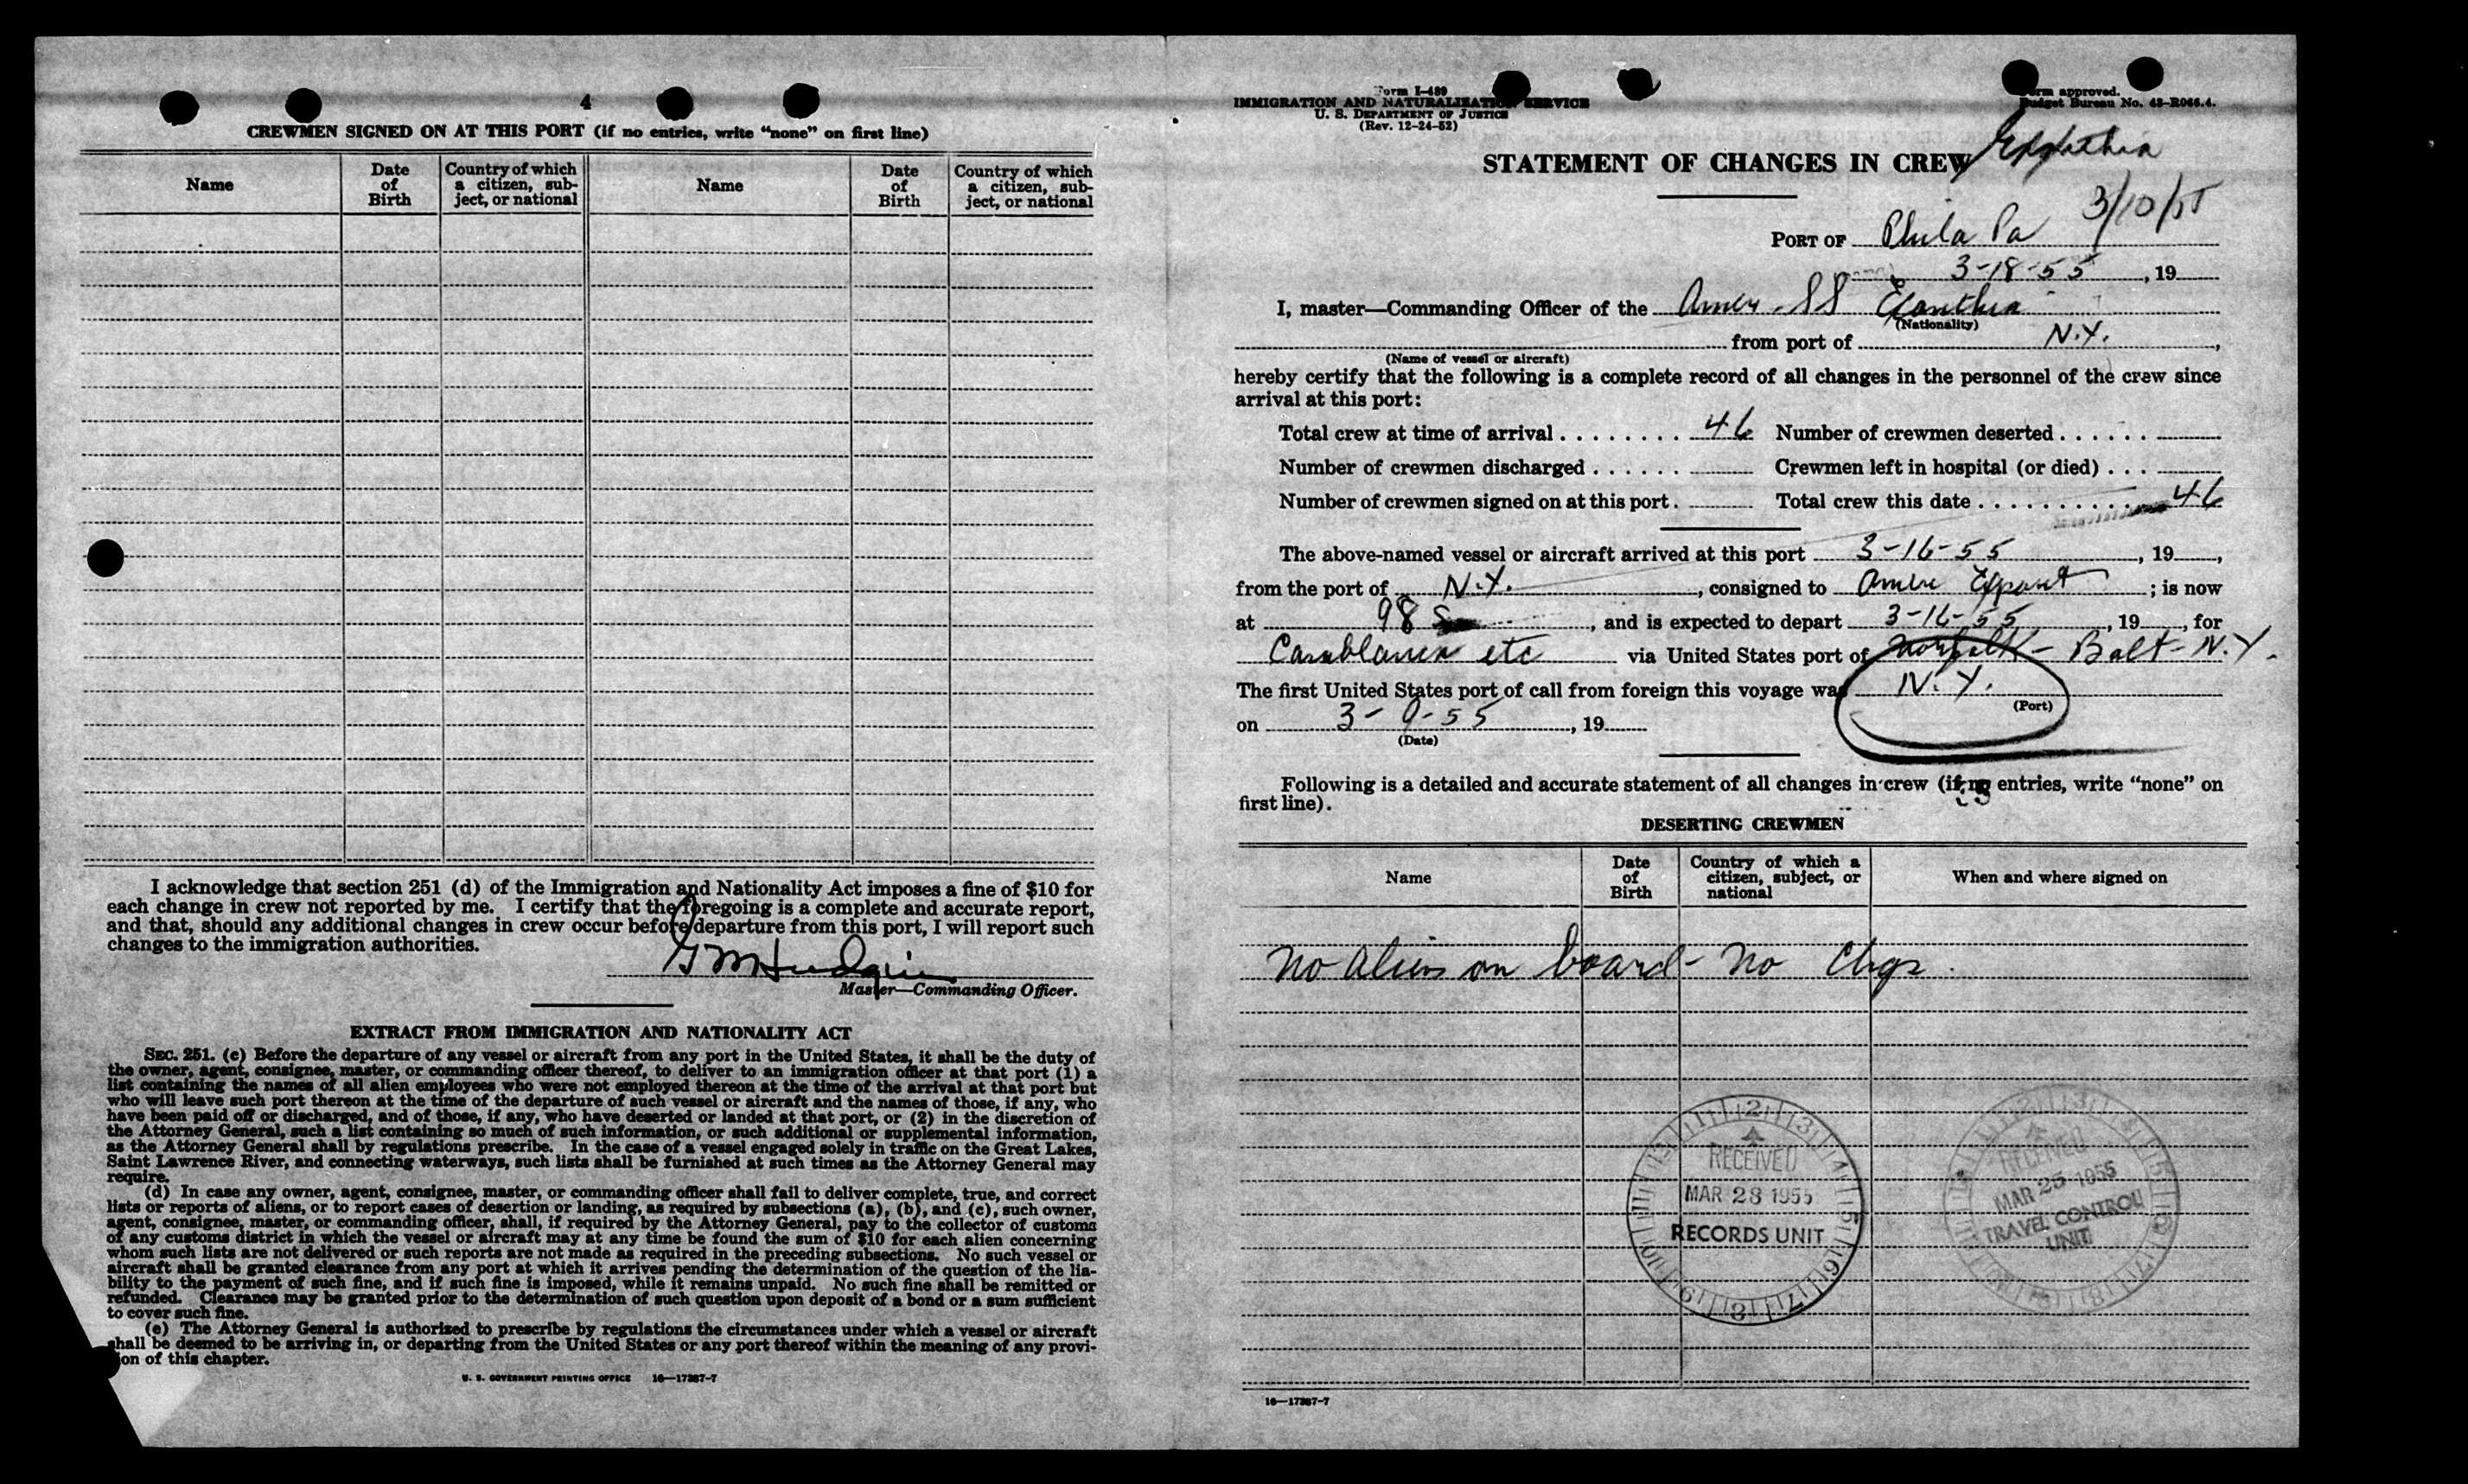 4
CREWMEN SIGNED ON AT THIS PORT (if no entries, write "none" on first line)
Name
Date of Birth
Country of which a citizen, sub-ject, or national
Name
Date of Birth
Country of which a citizen, sub-ject, or national
I acknowledge that section 251 (d) of the Immigration and Nationality Act imposes a fine of $10 for
each change in crew not reported by me. I certify that the foregoing is a complete and accurate report,
and that, should any additional changes in crew occur before departure from this port, I will report such
changes to the immigration authorities.
G M Hudgins
Master—Commanding Officer.
EXTRACT FROM IMMIGRATION AND NATIONALITY ACT
SEC. 251. (c) Before the departure of any vessel or aircraft from any port in the United States, it shall be the duty of
the owner, agent, consignee, master, or commanding officer thereof, to deliver to an immigration officer at that port (1) a
list containing the names of all alien employees who were not employed thereon at the time of the arrival at that port but
who will leave such port thereon at the time of the departure of such vessel or aircraft and the names of those, if any, who
have been paid off or discharged, and of those, if any, who have deserted or landed at that port, or (2) in the discretion of
the Attorney General, such a list containing so much of such information, or such additional or supplemental information,
as the Attorney General shall by regulations prescribe. In the case of a vessel engaged solely in traffic on the Great Lakes,
Saint Lawrence River, and connecting waterways, such lists shall be furnished at such times as the Attorney General may
require.
(d) In case any owner, agent, consignee, master, or commanding officer shall fail to deliver complete, true, and correct
lists or reports of aliens, or to report cases of desertion or landing, as required by subsections (a), (b), and (c), such owner,
agent, consignee, master, or commanding officer, shall, if required by the Attorney General, pay to the collector of customs
of any customs district in which the vessel or aircraft may at any time be found the sum of $10 for each alien concerning
whom such lists are not delivered or such reports are not made as required in the preceding subsections. No such vessel or
aircraft shall be granted clearance from any port at which it arrives pending the determination of the question of the lia-
bility to the payment of such fine, and if such fine is imposed, while it remains unpaid. No such fine shall be remitted or
refunded. Clearance may be granted prior to the determination of such question upon deposit of a bond or a sum sufficient
to cover such fine.
(e) The Attorney General is authorized to prescribe by regulations the circumstances under which a vessel or aircraft
shall be deemed to be arriving in, or departing from the United States or any port thereof within the meaning of any provi-
ion of this chapter.
U. S. GOVERNMENT PRINTING OFFICE 16—17387-7
Form I-489
IMMIGRATION AND NATURALIZATION SERVICE
U. S. DEPARTMENT OF JUSTICE
(Rev. 12-24-52)
Form approved.
Budget Bureau No. 43-R066.4.
STATEMENT OF CHANGES IN CREW
3/10/55
PORT OF Phila Pa
3-18-55, 19
I, master—Commanding Officer of the Amer. SS Exanthia
(Nationality)
from port of N.Y.,
(Name of vessel or aircraft)
hereby certify that the following is a complete record of all changes in the personnel of the crew since
arrival at this port:
Total crew at time of arrival . . . . . . . . 46 Number of crewmen deserted . . . . . .
Number of crewmen discharged . . . . . . Crewmen left in hospital (or died) . . .
Number of crewmen signed on at this port . Total crew this date . . . . . . . . . . 46
The above-named vessel or aircraft arrived at this port 3-16-55, 19,
from the port of N.Y., consigned to Amer Export; is now
at 98 S, and is expected to depart 3-16-55, 19, for
Casablanca etc via United States port of Norfolk - Balt - N.Y.
The first United States port of call from foreign this voyage was N.Y.
(Port)
on 3-9-55, 19
(Date)
Following is a detailed and accurate statement of all changes in crew (if no entries, write "none" on
first line).
DESERTING CREWMEN
Name
Date of Birth
Country of which a citizen, subject, or national
When and where signed on
No aliens on board - No Chgs.
RECEIVED
MAR 28 1955
RECORDS UNIT
RECEIVED
MAR 25 1955
TRAVEL CONTROL
UNIT
16—17387-7